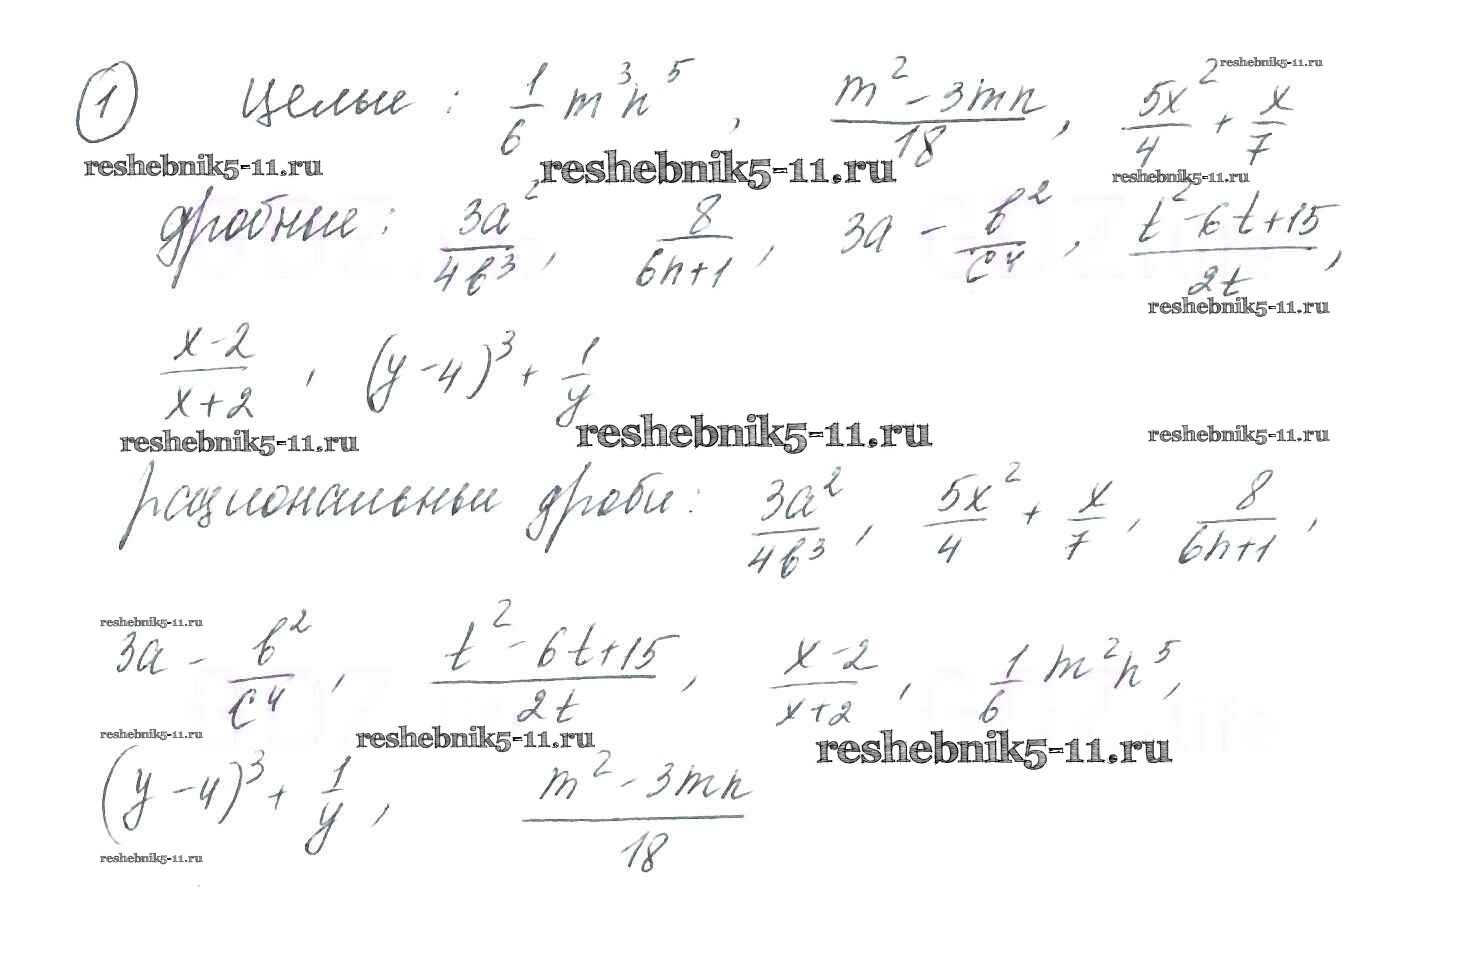 reshebnik5-11.ru
1 Целые: 1/6 m³n⁵, (m² - 3mn)/18, 5x²/4 + x/7
reshebnik5-11.ru reshebnik5-11.ru reshebnik5-11.ru
дробные: 3a²/4b³, 8/(6n+1), 3a - b²/c⁴, (t² - 6t + 15)/2t,
reshebnik5-11.ru
(x-2)/(x+2), (y-4)³ + 1/y
reshebnik5-11.ru reshebnik5-11.ru reshebnik5-11.ru
рациональные дроби: 3a²/4b³, 5x²/4 + x/7, 8/(6n+1),
reshebnik5-11.ru
3a - b²/c⁴, (t² - 6t + 15)/2t, (x-2)/(x+2), 1/6 m²n⁵,
reshebnik5-11.ru reshebnik5-11.ru reshebnik5-11.ru
(y-4)³ + 1/y, (m² - 3mn)/18
reshebnik5-11.ru